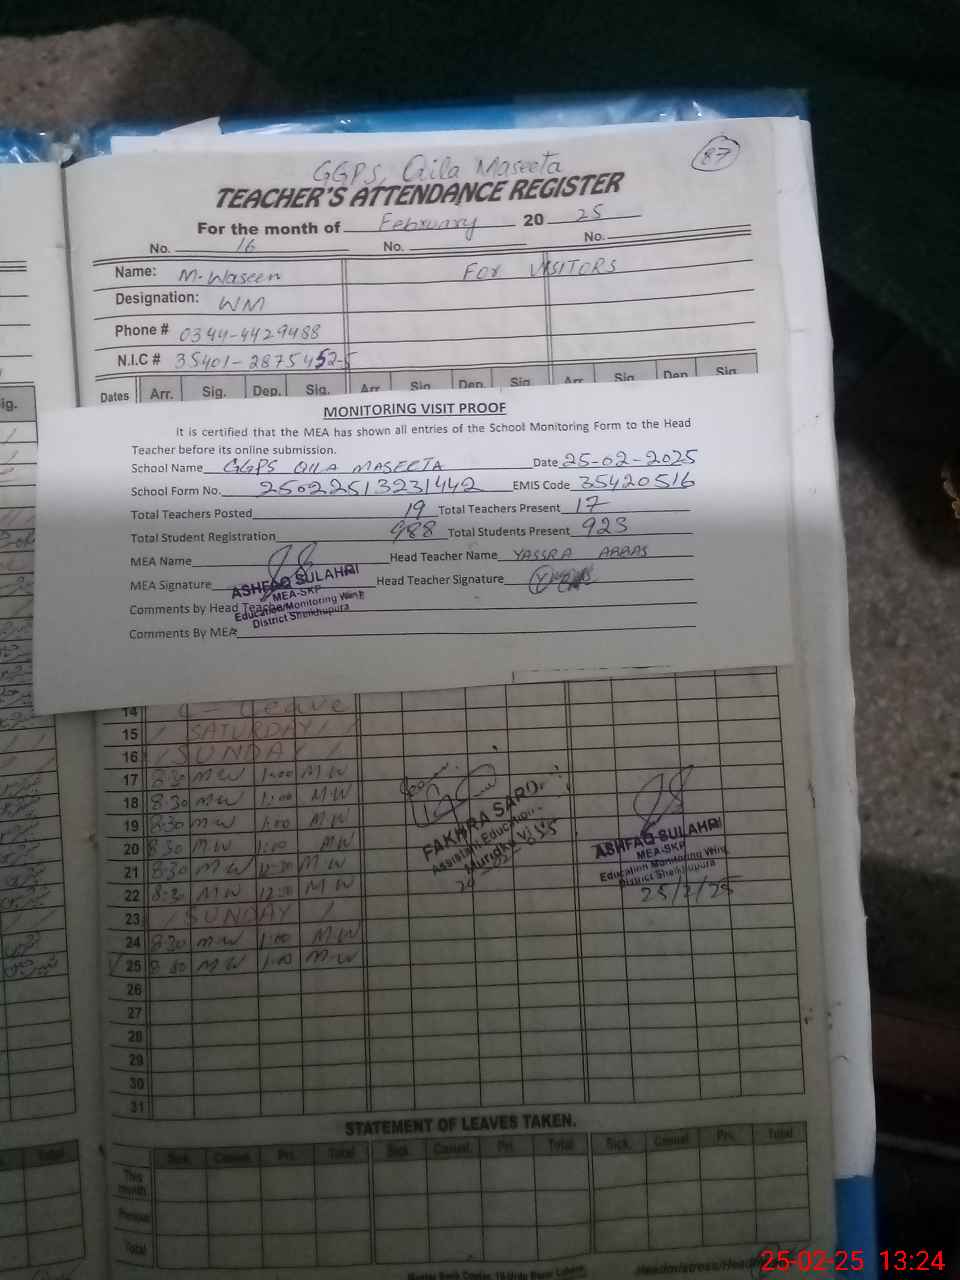 87
GGPS, Qila Maseeta
TEACHER'S ATTENDANCE REGISTER
For the month of February 20 25
No. 16 No. No.
Name: M. Waseen For VISITORS
Designation: WM
Phone # 0344-4429488
N.I.C # 35401-2875452-5
Dates Arr. Sig. Dep. Sig. Arr Sig Dep. Sig Arr Sig. Dep Sig.
MONITORING VISIT PROOF
It is certified that the MEA has shown all entries of the School Monitoring Form to the Head
Teacher before its online submission.
School Name GGPS QILA MASEETA Date 25-02-2025
School Form No. 25022513231442 EMIS Code 35420516
Total Teachers Posted 19 Total Teachers Present 17
Total Student Registration 988 Total Students Present 923
MEA Name Head Teacher Name YASSRA ABBAS
MEA Signature Head Teacher Signature
ASHFAQ SULAHRI
MEA-SKP
Education Monitoring Wing
District Sheikhupura
Comments by Head Teacher
Comments By MEA:
14 Leave
15 SATURDAY
16 SUNDAY
17 8:30 MW 1:00 MW
18 8:30 MW 1:00 MW
19 8:30 MW 1:00 MW
20 8:30 MW 1:00 MW
21 8:30 MW MW
22 8:30 MW MW
23 SUNDAY
24 8:30 MW 1:00 MW
25 8:30 MW 1:00 MW
26
27
28
29
30
31
FAKHRA SARD
Assistant Education
ASHFAQ SULAHRI
MEA-SKP
Education Monitoring Wing
District Sheikhupura
25/2/25
STATEMENT OF LEAVES TAKEN.
Sick. Casual. Pri. Total Sick. Casual. Pri. Total Sick. Casual. Pri. Total
This month
Previous
Total
25-02-25 13:24